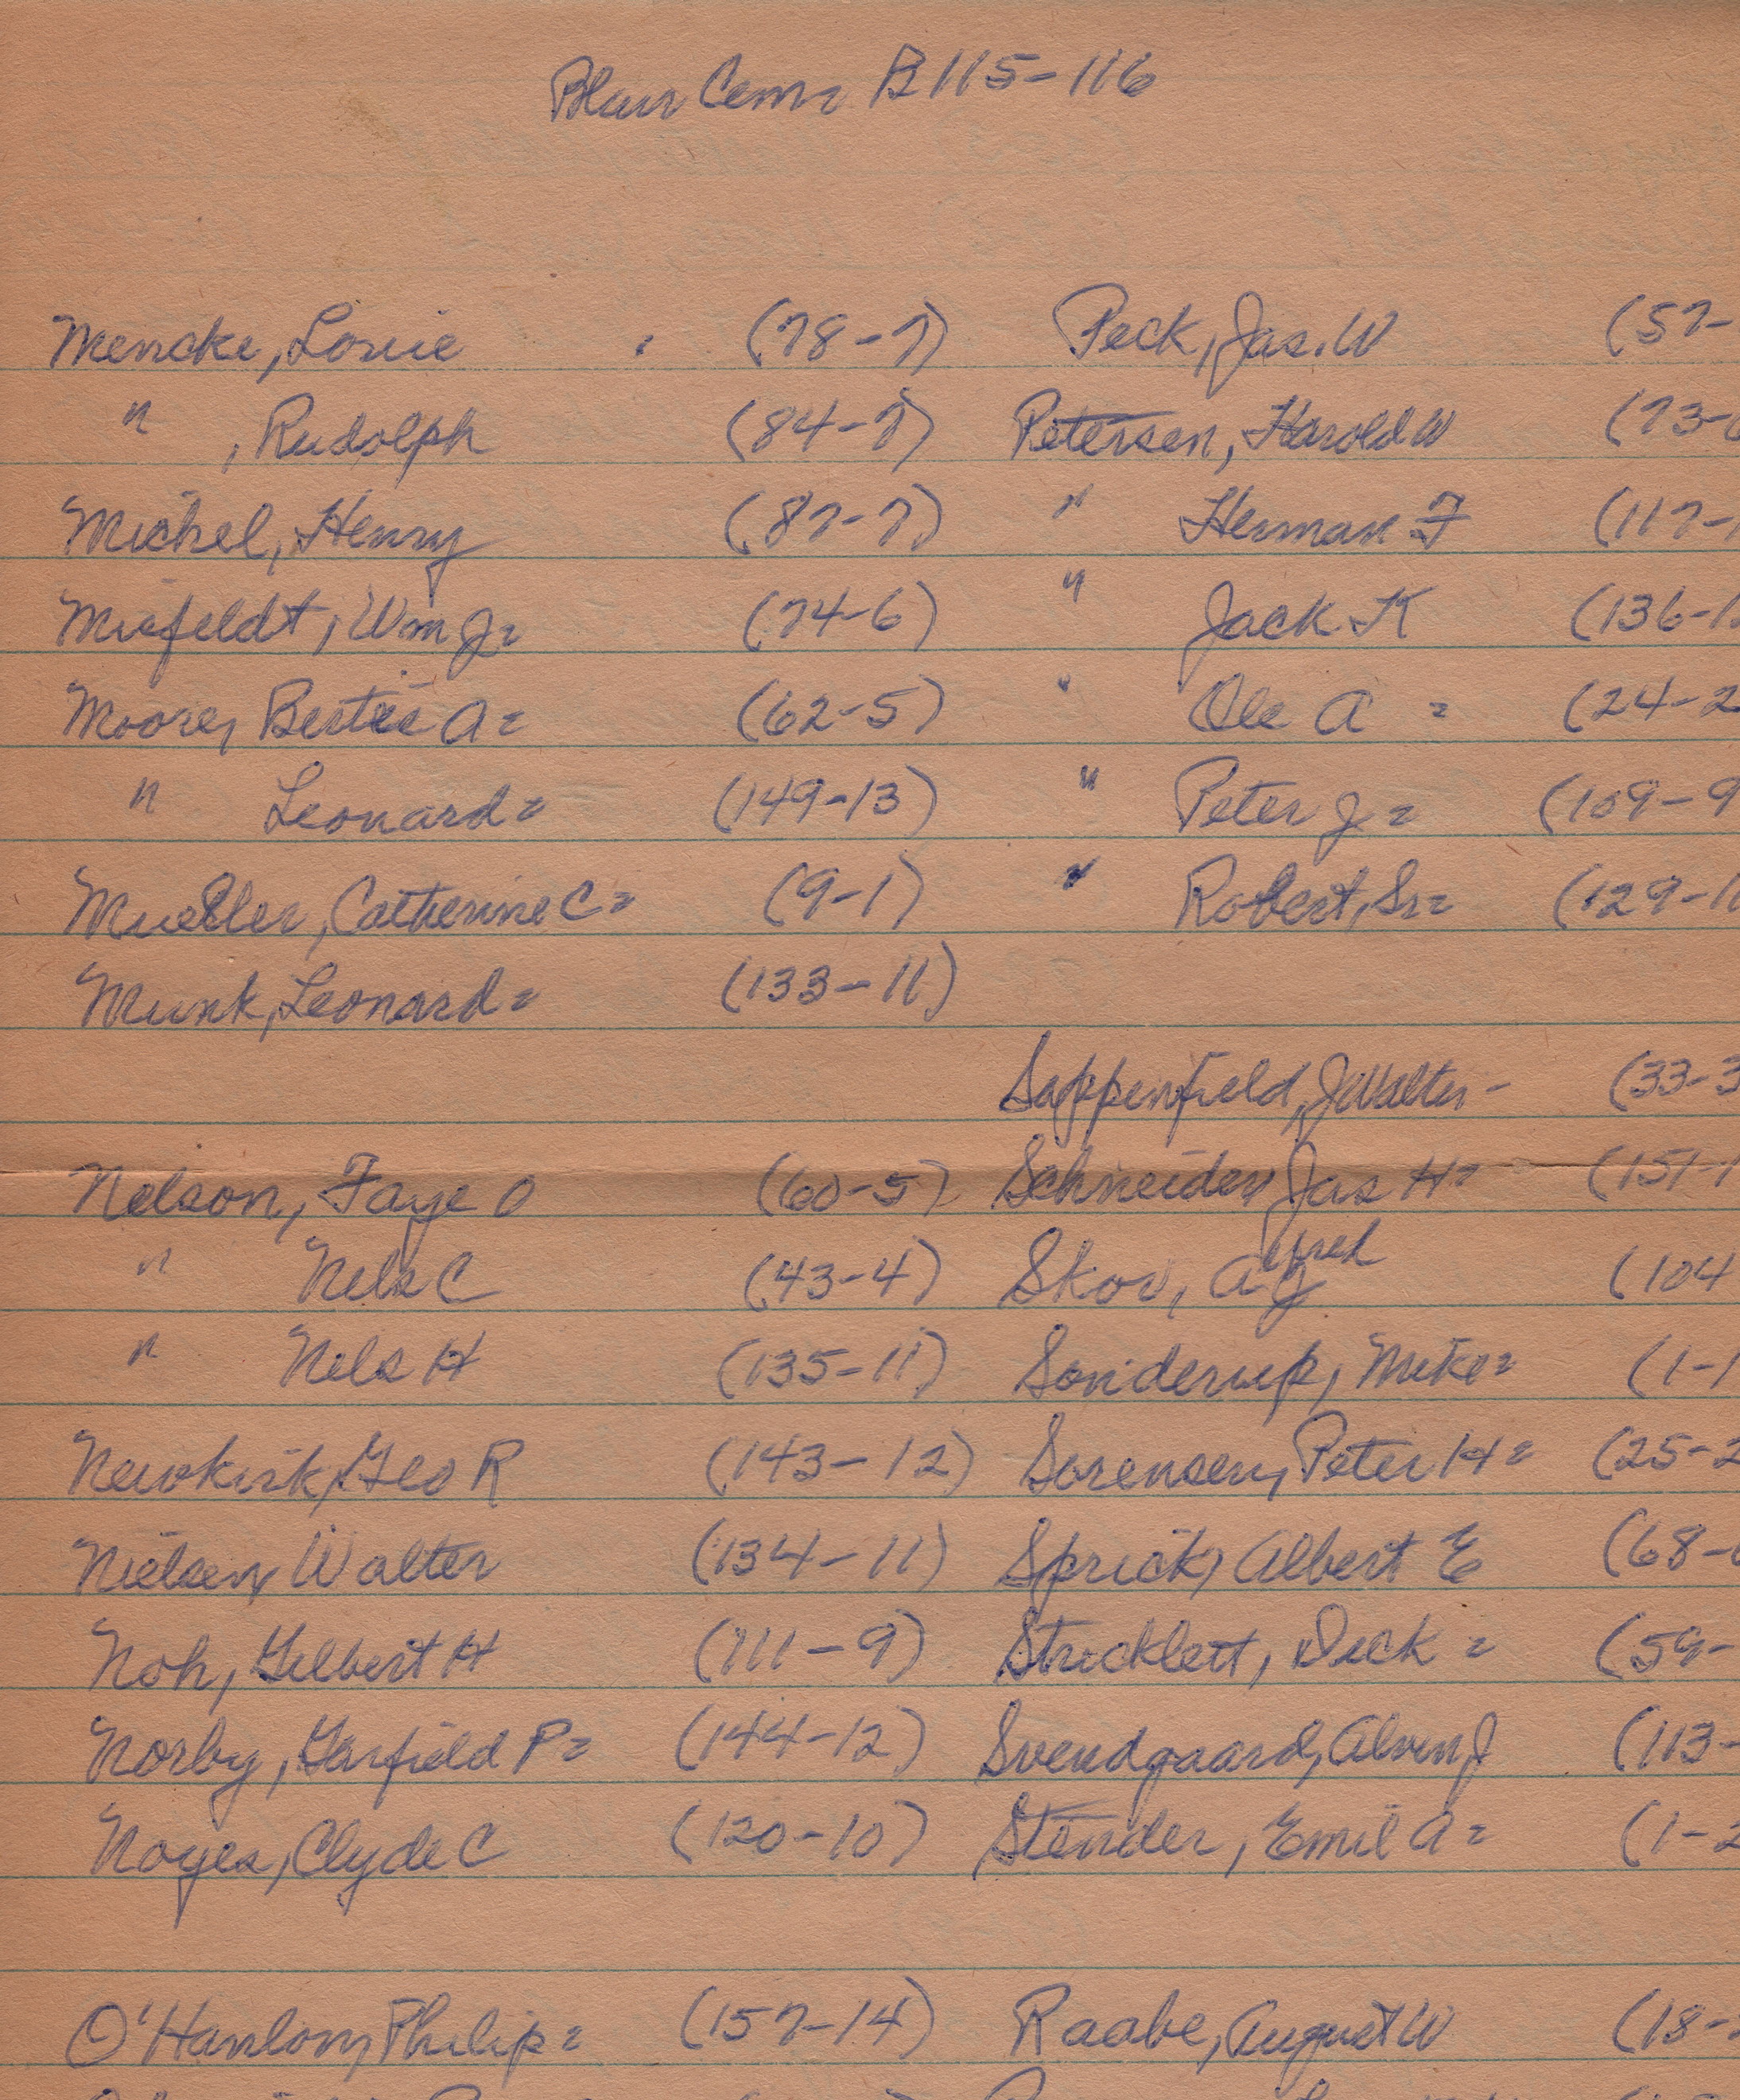 Blair Cem= B115-116
Mencke, Louie (78-7)
" , Rudolph (84-7)
Michel, Henry (87-7)
Misfeldt, Wm J= (74-6)
Moore, Bertie A= (62-5)
" Leonard= (149-13)
Mueller, Catherine C= (9-1)
Munk, Leonard= (133-11)
Nelson, Faye O (60-5)
" Nels C (43-4)
" Nels H (135-11)
Newkirk, Geo R (143-12)
Nielsen, Walter (134-11)
Noh, Gilbert H (111-9)
Norby, Garfield P= (144-12)
Noyes, Clyde C (120-10)
O'Hanlon, Philip= (157-14)
Peck, Jas. W (57-
Petersen, Harold W (73-6
" Herman F (117-
" Jack K (136-1
" Ole A = (24-2
" Peter J= (109-9
" Robert, Sr= (129-1
Sappenfield, J Walter - (33-3
Schneider, Jas H= (151-1
Skov, Alfred J (104
Sonderup, Mike= (1-1
Sorensen, Peter H= (25-2
Sprick, Albert E (68-6
Stricklett, Dick = (59-
Svendgaard, Alven J (113-
Stender, Emil A= (1-2
Raabe, August W (18-